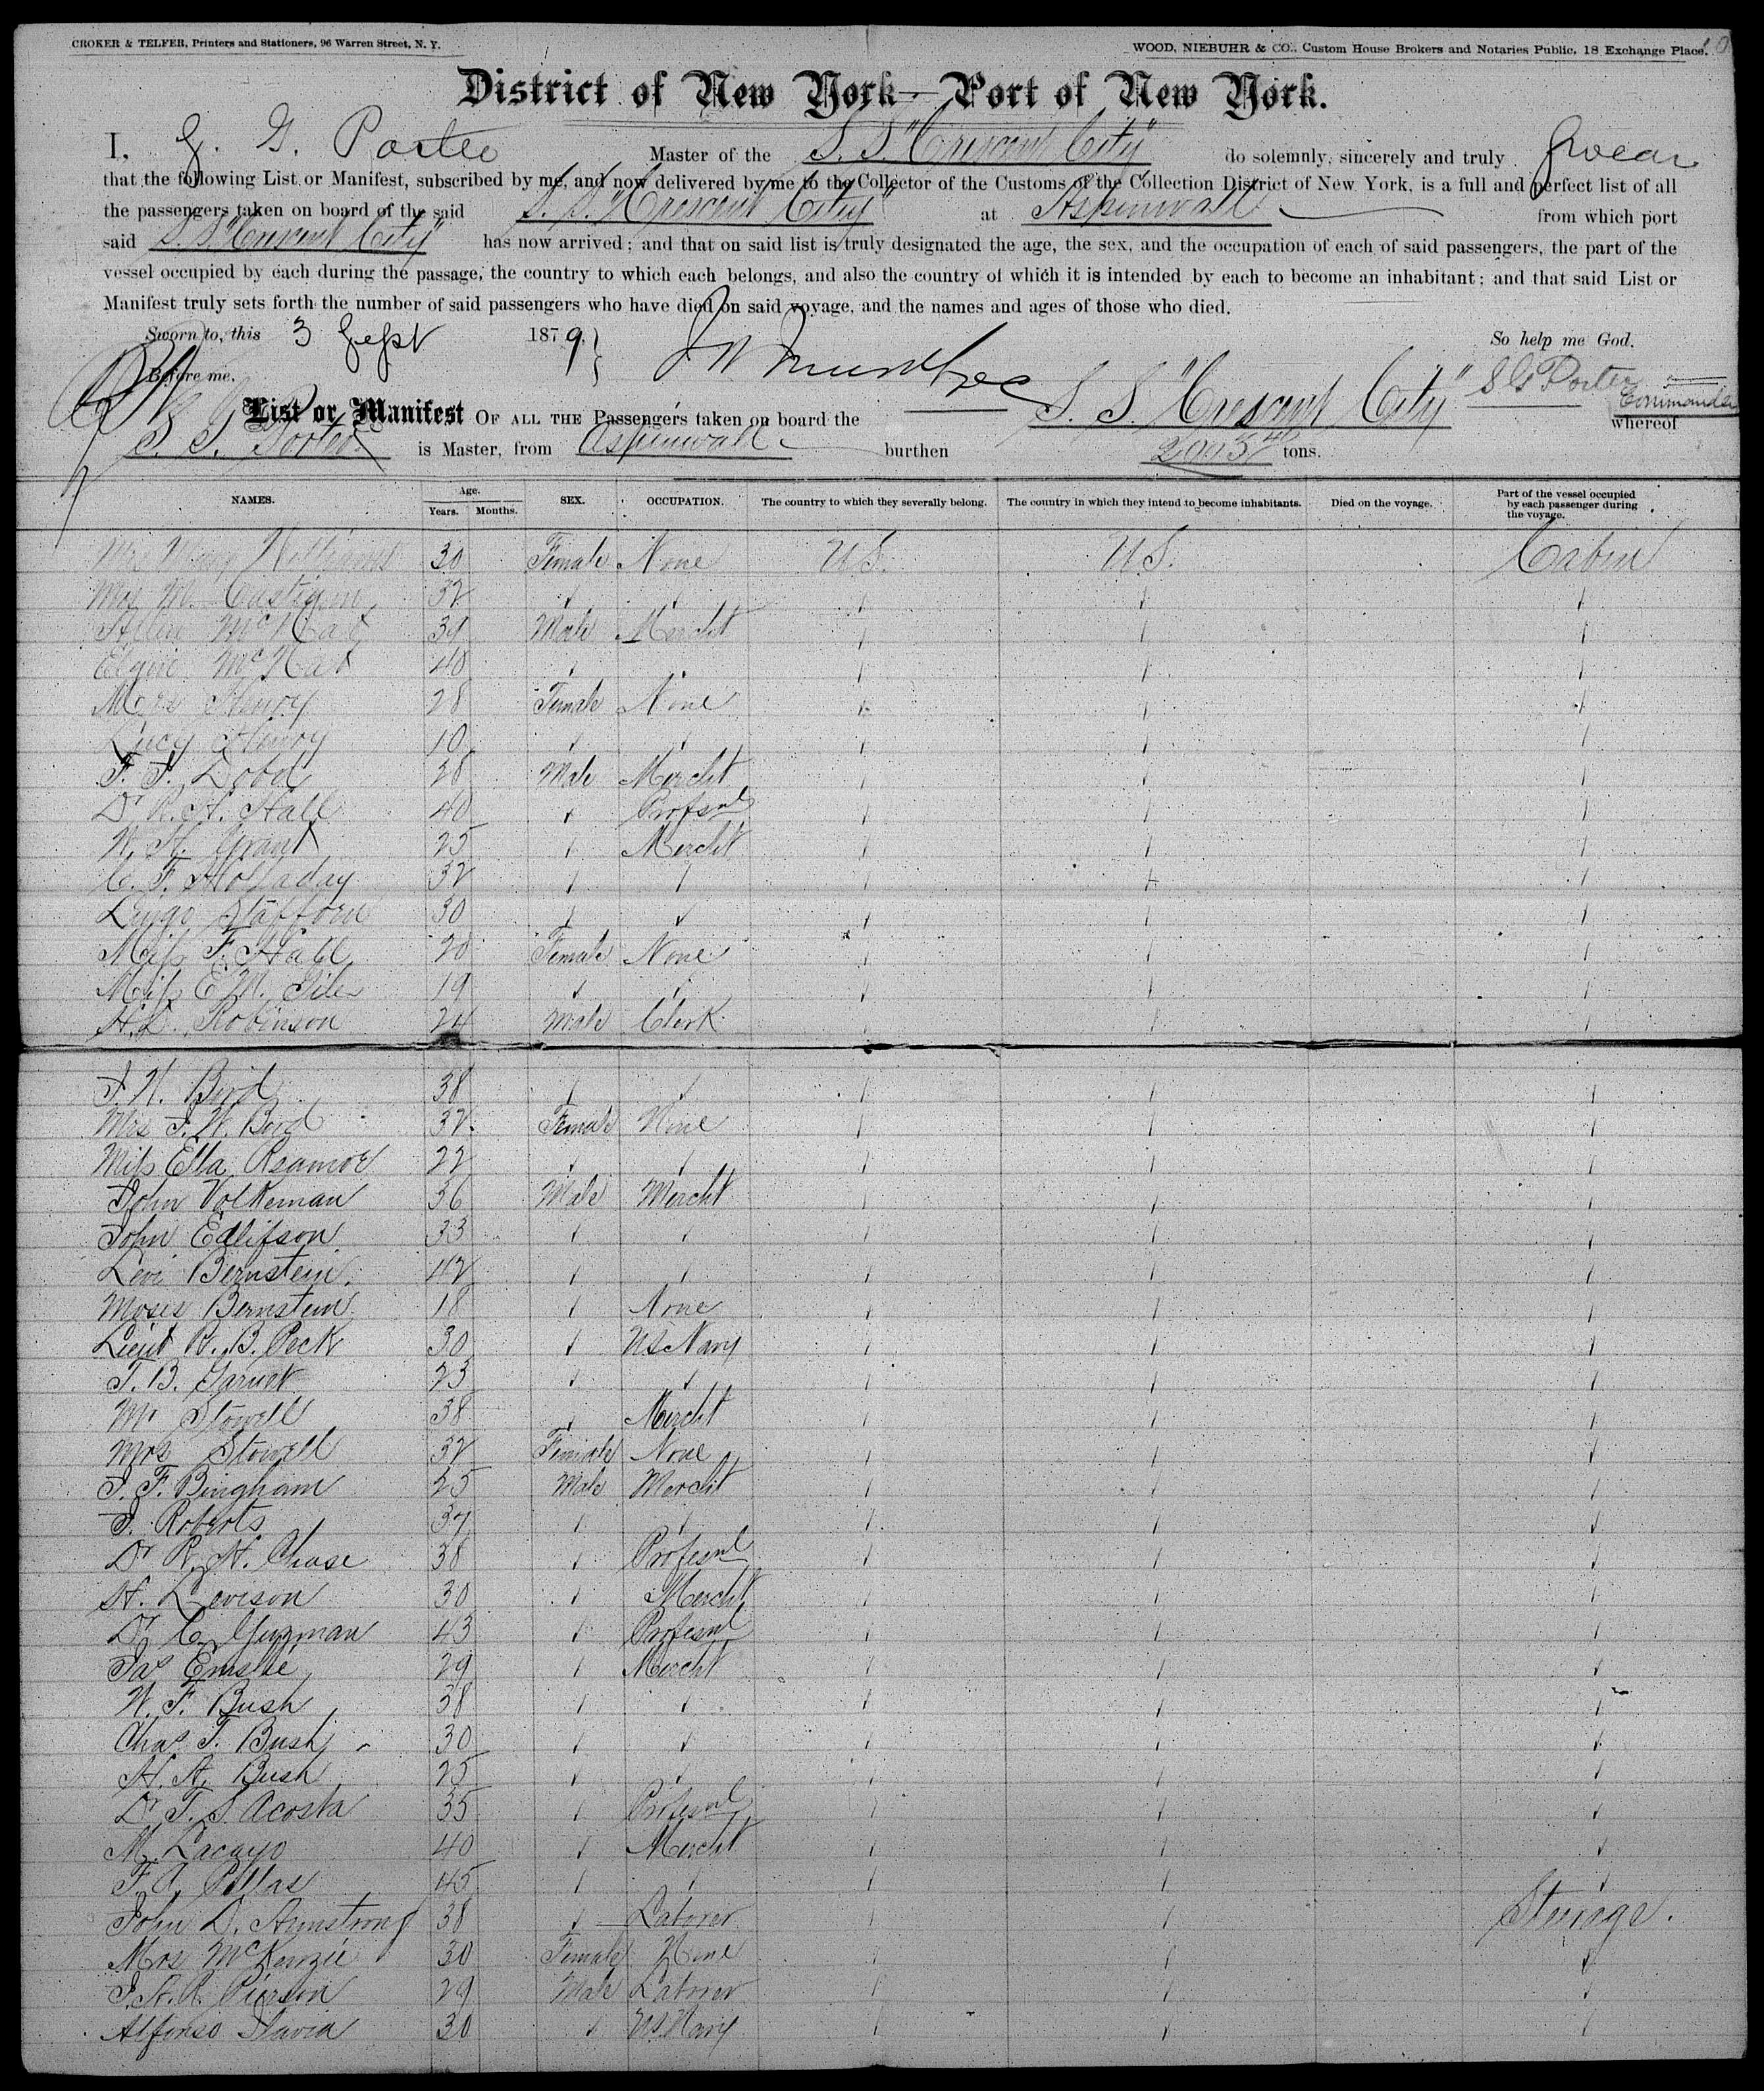 CROKER & TELFER, Printers and Stationers, 96 Warren Street, N. Y.
WOOD, NIEBUHR & CO., Custom House Brokers and Notaries Public, 18 Exchange Place.
District of New York—Port of New York.
I, S. G. Porter Master of the S. S. "Crescent City" do solemnly, sincerely and truly swear
that the following List or Manifest, subscribed by me, and now delivered by me to the Collector of the Customs of the Collection District of New York, is a full and perfect list of all
the passengers taken on board of the said S. S. "Crescent City" at Aspinwall from which port
said S. S. "Crescent City" has now arrived; and that on said list is truly designated the age, the sex, and the occupation of each of said passengers, the part of the
vessel occupied by each during the passage, the country to which each belongs, and also the country of which it is intended by each to become an inhabitant; and that said List or
Manifest truly sets forth the number of said passengers who have died on said voyage, and the names and ages of those who died.
Sworn to, this 3 Sept 1879. So help me God.
Before me. S G Porter Commander
List or Manifest OF ALL THE Passengers taken on board the S. S. "Crescent City" whereof
S. G. Porter is Master, from Aspinwall burthen tons.
NAMES. Age. Years. Months. SEX. OCCUPATION. The country to which they severally belong. The country in which they intend to become inhabitants. Died on the voyage. Part of the vessel occupied by each passenger during the voyage.
Williams 30 Female None U.S. U.S. Cabin
Mrs M. 32
39 Male Mercht
40
Henry 28 Female None
Lucy Henry 10
F. F. Dobd 28 Male Mercht
Dr R. H. Hall 40 Profesnl
W. H. Grant 25 Mercht
C. F. Holladay 32
Stafford 30
Miss F. Hall 20 Female None
Miss E. M. 19
H. L. Robinson 24 Male Clerk
J. W. Bird 38
Mrs J. W. Bird 32 Female None
Miss Ella 22
John Volkeman 36 Male Mercht
John Edlifson 33
Levi Bernstein 42
Moses Bernstein 18 None
Lieut R. B. Peck 30 US Navy
T. B. 23
Mr Stowell 38 Mercht
Mrs Stowell 32 Female None
J. F. Bingham 25 Male Mercht
J. Roberts 37
Dr R. H. Chase 38 Profesnl
H. Levison 30 Mercht
Dr C. Guzman 43 Profesnl
Jas Emslie 29 Mercht
W. F. Bush 38
Chas T. Bush 30
H. A. Bush 25
Dr T. S. Acosta 35 Profesnl
M. Lacayo 40 Mercht
F. A. Pellas 45
John D. Armstrong 38 Laborer Steerage.
Mrs McKenzie 30 Female None
J. A. R. Pierson 29 Male Laborer
Alfonso 30 US Navy